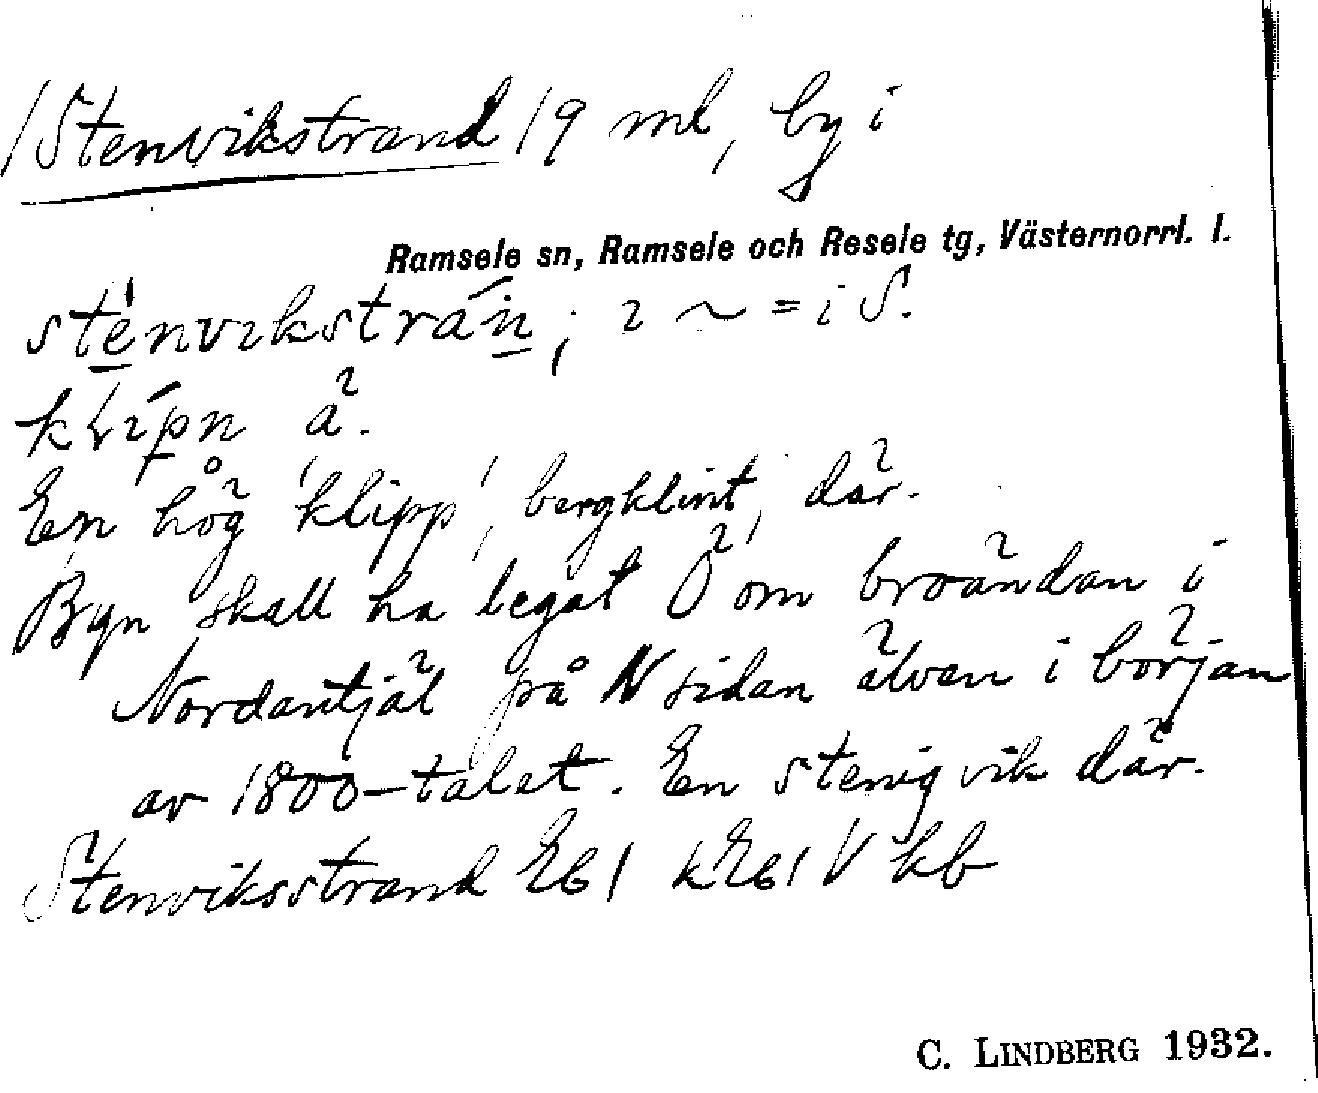 /Stenvikstrand/ 9 ml, by i
Ramsele sn, Ramsele och Resele tg, Västernorrl. l.
stenvikstrán; ı ~ = i S.
klípn å.
En hög 'klipp', bergklint, där.
Byn skall ha legat Ö om broändan i
Nordantjäl på N sidan älven i början
av 1800-talet. En stenig vik där.
Stenviksstrand EB1 kEB1V kb
C. LINDBERG 1932.